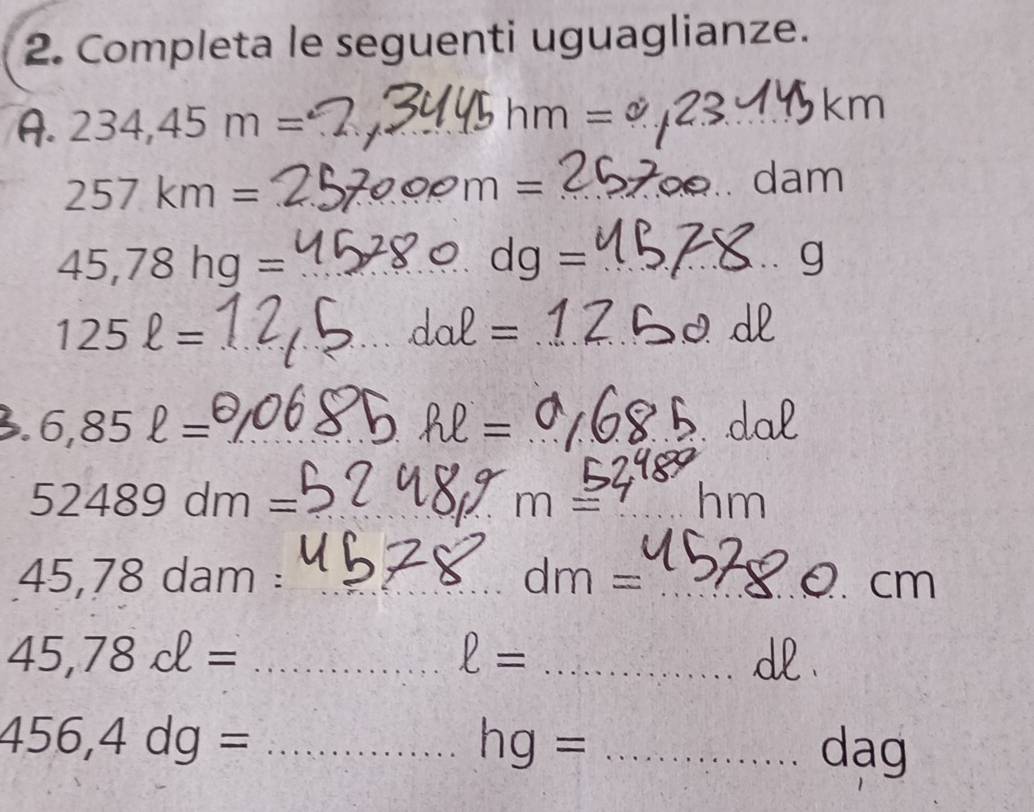 2. Completa le seguenti uguaglianze.
A. 234,45 m = 2,3445 hm = 0,23445 km
257 km = 257000 m = 25700 dam
45,78 hg = 45780 dg = 4578 g
125 ℓ = 12,5 daℓ = 1250 dℓ
B. 6,85 ℓ = 0,0685 hℓ = 0,685 daℓ
52489 dm = 5248,9 m = 52,489 hm
45,78 dam = 4578 dm = 45780 cm
45,78 cℓ = ............ ℓ = ............ dℓ.
456,4 dg = ............ hg = ............ dag